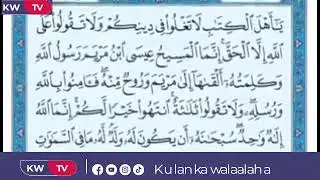 KW TV
KW TV
يَٰٓأَهْلَ ٱلْكِتَٰبِ لَا تَغْلُوا۟ فِى دِينِكُمْ وَلَا تَقُولُوا۟ عَلَى
ٱللَّهِ إِلَّا ٱلْحَقَّ إِنَّمَا ٱلْمَسِيحُ عِيسَى ٱبْنُ مَرْيَمَ رَسُولُ ٱللَّهِ
وَكَلِمَتُهُۥٓ أَلْقَىٰهَآ إِلَىٰ مَرْيَمَ وَرُوحٌ مِّنْهُ فَـَٔامِنُوا۟ بِٱللَّهِ
وَرُسُلِهِۦ وَلَا تَقُولُوا۟ ثَلَٰثَةٌ ٱنتَهُوا۟ خَيْرًا لَّكُمْ إِنَّمَا ٱللَّهُ
إِلَٰهٌ وَٰحِدٌ سُبْحَٰنَهُۥٓ أَن يَكُونَ لَهُۥ وَلَدٌ لَّهُۥ مَا فِى ٱلسَّمَٰوَٰتِ
KW TV Ku lan ka walaalaha